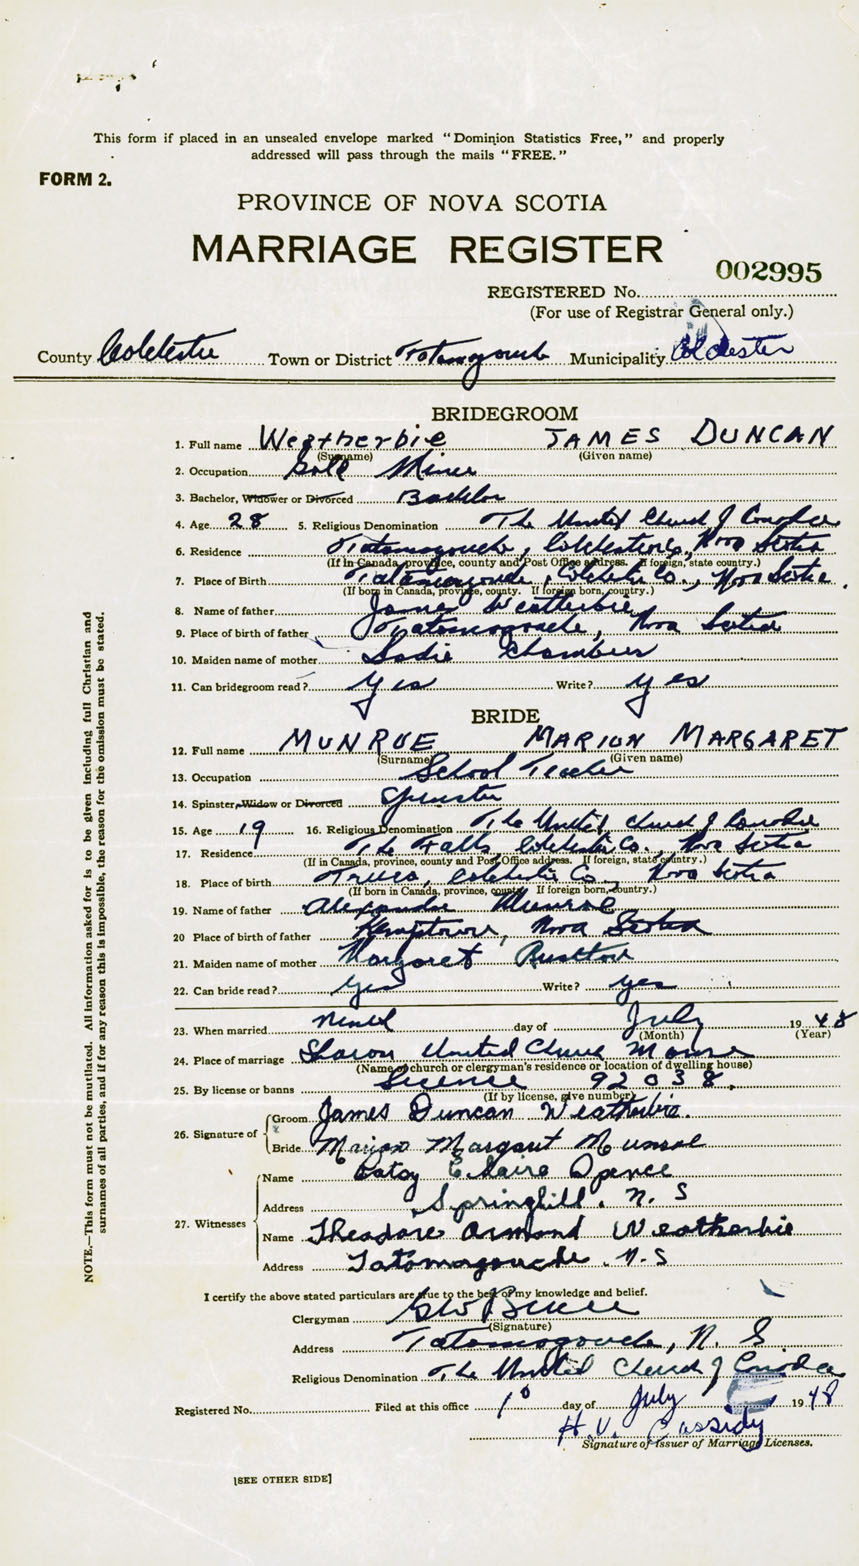 This form if placed in an unsealed envelope marked "Dominion Statistics Free," and properly
addressed will pass through the mails "FREE."
FORM 2.
PROVINCE OF NOVA SCOTIA
MARRIAGE REGISTER
002995
REGISTERED No.
(For use of Registrar General only.)
County Colchester Town or District Tatamagouche Municipality Colchester
BRIDEGROOM
1. Full name Weatherbie JAMES DUNCAN
(Surname) (Given name)
2. Occupation Gold Miner
3. Bachelor, Widower or Divorced Bachelor
4. Age 28 5. Religious Denomination The United Church of Canada
6. Residence Tatamagouche, Colchester Co., Nova Scotia
(If in Canada, province, county and Post Office address. If foreign, state country.)
7. Place of Birth Tatamagouche, Colchester Co., Nova Scotia.
(If born in Canada, province, county. If foreign born, country.)
8. Name of father James Weatherbie
9. Place of birth of father Tatamagouche, Nova Scotia
10. Maiden name of mother Sadie Chambers
11. Can bridegroom read? yes Write? yes
BRIDE
12. Full name MUNROE MARION MARGARET
(Surname) (Given name)
13. Occupation School Teacher
14. Spinster, Widow or Divorced Spinster
15. Age 19 16. Religious Denomination The United Church of Canada
17. Residence The Falls, Colchester Co., Nova Scotia
(If in Canada, province, county and Post Office address. If foreign, state country.)
18. Place of birth Truro, Colchester Co., Nova Scotia
(If born in Canada, province, county. If foreign born, country.)
19. Name of father Alexander Munroe
20 Place of birth of father Kemptown, Nova Scotia
21. Maiden name of mother Margaret
22. Can bride read? yes Write? yes
23. When married day of July 1948
(Month) (Year)
24. Place of marriage Sharon United Church Manse
(Name of church or clergyman's residence or location of dwelling house)
25. By license or banns License 92038.
(If by license, give number)
26. Signature of Groom James Duncan Weatherbie.
Bride Marion Margaret Munroe
27. Witnesses
Name Patsy Claire Spence
Address Springhill, N.S
Name Theodore Armond Weatherbie
Address Tatamagouche, N.S
I certify the above stated particulars are true to the best of my knowledge and belief.
Clergyman
(Signature)
Address Tatamagouche, N. S.
Religious Denomination The United Church of Canada
Registered No. Filed at this office 10 day of July 1948
H. V. Cassidy
Signature of Issuer of Marriage Licenses.
[SEE OTHER SIDE]
NOTE.—This form must not be mutilated. All information asked for is to be given including full Christian and
surnames of all parties, and if for any reason this is impossible, the reason for the omission must be stated.